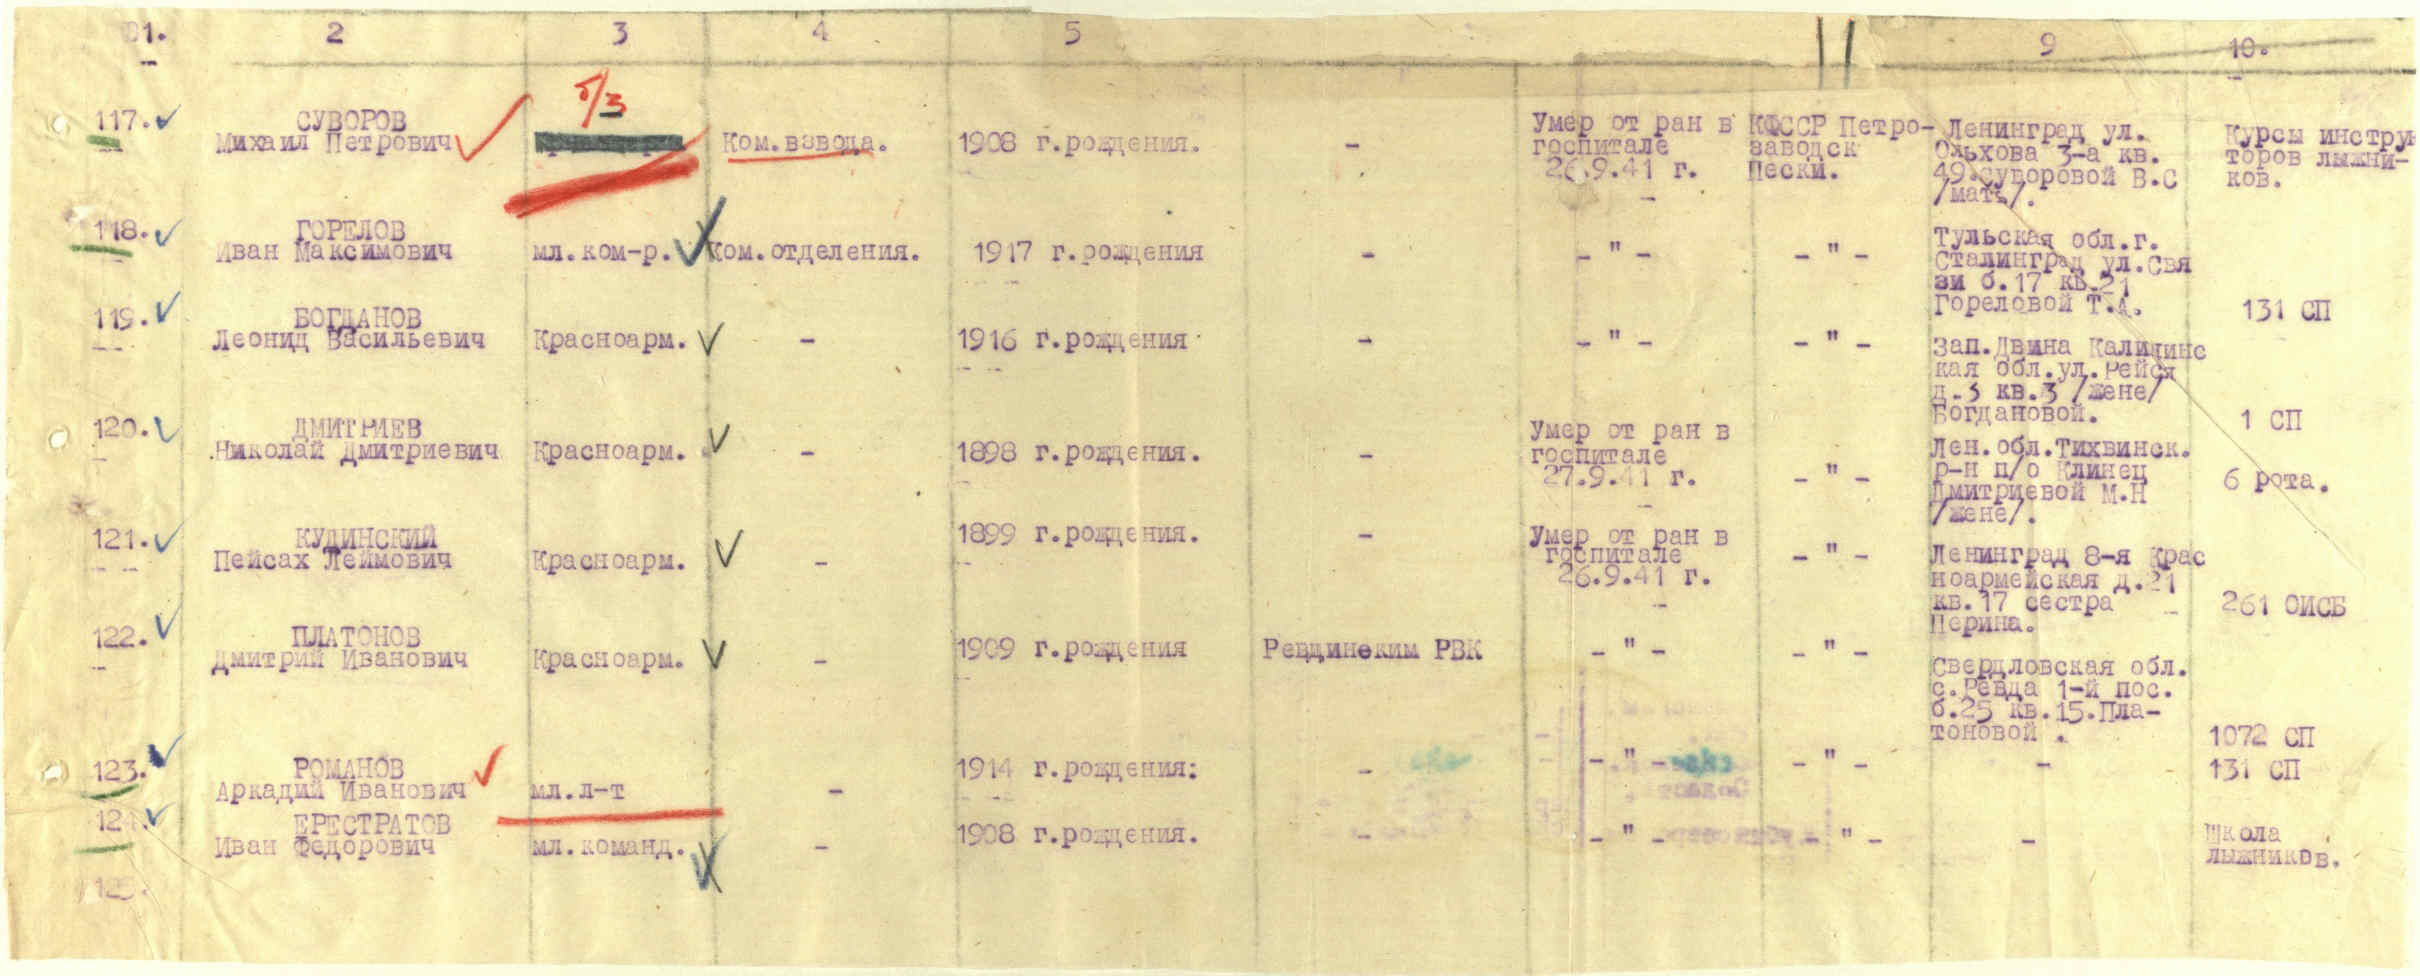 1. 2 3 4 5 9 10.
б/з
117. СУВОРОВ
Михаил Петрович Ком.взвода. 1908 г.рождения. -
Умер от ран в
госпитале
26.9.41 г.
КФССР Петро-
заводск
Пески.
Ленинград ул.
Ольхова 3-а кв.
49.Суворовой В.С
/мать/.
Курсы инструк
торов лыжни-
ков.
118. ГОРЕЛОВ
Иван Максимович мл.ком-р. Ком.отделения. 1917 г.рождения - -"- -"-
Тульская обл.г.
Сталинград ул.Свя
зи б.17 кв.21
Гореловой Т.А.
131 СП
119. БОГДАНОВ
Леонид Васильевич Красноарм. - 1916 г.рождения - -"- -"-
Зап.Двина Калининс
кая обл.ул.Рейся
д.3 кв.3 /жене/
Богдановой.
1 СП
120. ДМИТРИЕВ
Николай Дмитриевич Красноарм. - 1898 г.рождения. -
Умер от ран в
госпитале
27.9.41 г.
-"-
Лен.обл.Тихвинск.
р-н п/о Клинец
Дмитриевой М.Н
/жене/.
6 рота.
121. КУДИНСКИЙ
Пейсах Леймович Красноарм. - 1899 г.рождения. -
Умер от ран в
госпитале
26.9.41 г.
-"-
Ленинград 8-я Крас
ноармейская д.21
кв.17 сестра
Перина.
261 ОИСБ
122. ПЛАТОНОВ
Дмитрий Иванович Красноарм. - 1909 г.рождения Ревдинским РВК -"- -"-
Свердловская обл.
с.Ревда 1-й пос.
б.25 кв.15.Пла-
тоновой .
1072 СП
123. РОМАНОВ
Аркадий Иванович мл.л-т - 1914 г.рождения: - -"- -"- - 131 СП
124. ЕРЕСТРАТОВ
Иван Федорович мл.команд. - 1908 г.рождения. - -"- -"- -
Школа
лыжников.
125.